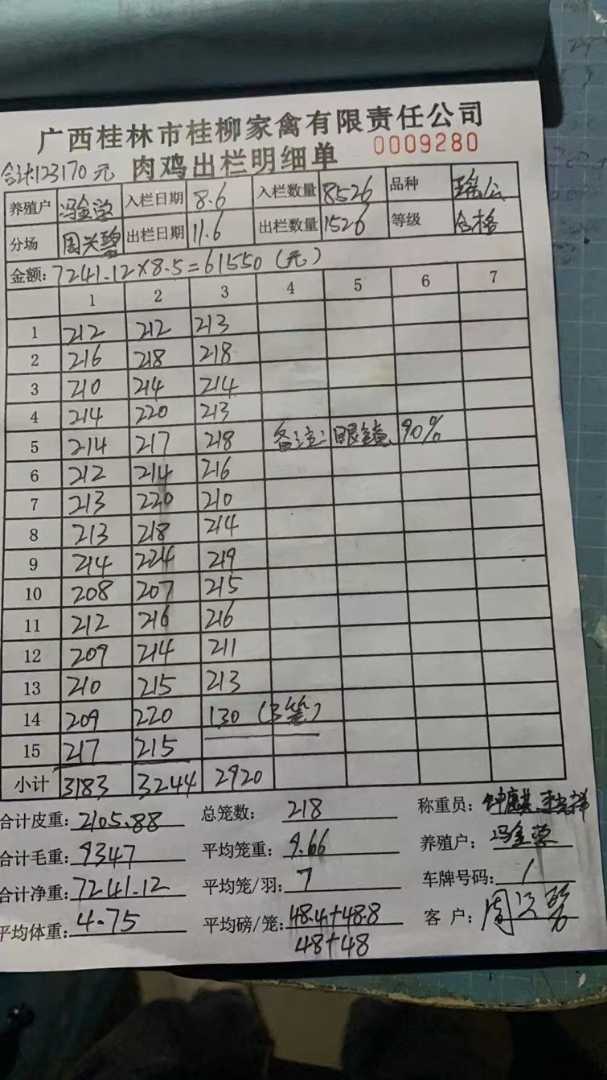 广西桂林市桂柳家禽有限责任公司
合计:123170元 肉鸡出栏明细单 0009280
养殖户 冯金荣 入栏日期 8.6 入栏数量 8526 品种 瑶公
分场 周兴碧 出栏日期 11.6 出栏数量 1526 等级 合格
金额: 7241.12×8.5=61550(元)
1 2 3 4 5 6 7
1 212 212 213
2 216 218 218
3 210 214 214
4 214 220 213
5 214 217 218 备注: 眼镜 90%
6 212 214 216
7 213 220 210
8 213 218 214
9 214 224 219
10 208 207 215
11 212 216 216
12 209 214 211
13 210 215 213
14 209 220 130 (3笼)
15 217 215
小计 3183 3244 2920
合计皮重: 2105.88 总笼数: 218 称重员:
合计毛重: 9347 平均笼重: 9.66 养殖户: 冯金荣
合计净重: 7241.12 平均笼/羽: 7 车牌号码: 1
平均体重: 4.75 平均磅/笼: 48.4+48.8 客户:
48+48